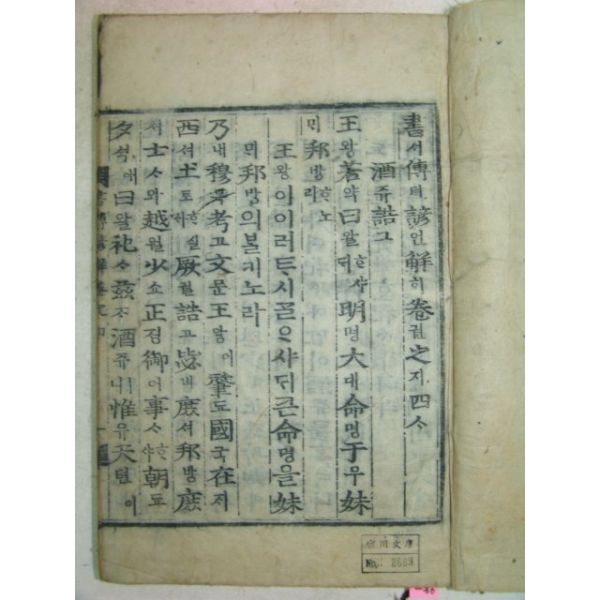 書셔傳뎐諺언解ᄒᆡ卷권之지四ᄉᆞ
酒쥬誥고
王왕若약曰왈ᄒᆞ샤ᄃᆡ明명大대命명于우妹
ᄆᆡ邦방ᄒᆞ노라
王왕이이러ᄐᆞ시ᄀᆞᆯᄋᆞ샤ᄃᆡ큰命명을妹
ᄆᆡ邦방의ᄇᆞᆯ키노라
乃내穆목考고文문王왕이肇됴國국在ᄌᆡ
西셔土토ᄒᆞ실ᄉᆡ厥궐誥고毖비庶셔邦방庶
셔士ᄉᆞ와越월少쇼正졍御어事ᄉᆞᄒᆞ샤朝됴
夕셕애曰왈祀ᄉᆞ玆ᄌᆞ酒쥬ㅣ니惟유天텬이
文庫
No.